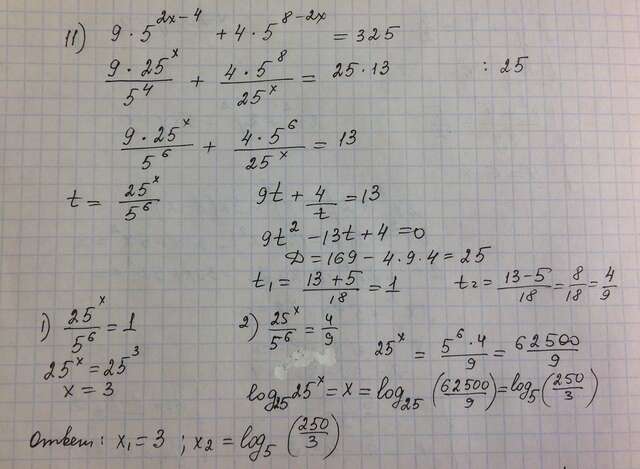 11) 9 · 5^(2x−4) + 4 · 5^(8−2x) = 325
(9 · 25^x)/5^4 + (4 · 5^8)/25^x = 25 · 13 : 25
(9 · 25^x)/5^6 + (4 · 5^6)/25^x = 13
t = 25^x/5^6 9t + 4/t = 13
9t² − 13t + 4 = 0
D = 169 − 4 · 9 · 4 = 25
t₁ = (13 + 5)/18 = 1 t₂ = (13 − 5)/18 = 8/18 = 4/9
1) 25^x/5^6 = 1 2) 25^x/5^6 = 4/9
25^x = 25^3 25^x = (5^6 · 4)/9 = 62500/9
x = 3 log₂₅ 25^x = x = log₂₅ (62500/9) = log₅ (250/3)
Ответ: x₁ = 3 ; x₂ = log₅ (250/3)